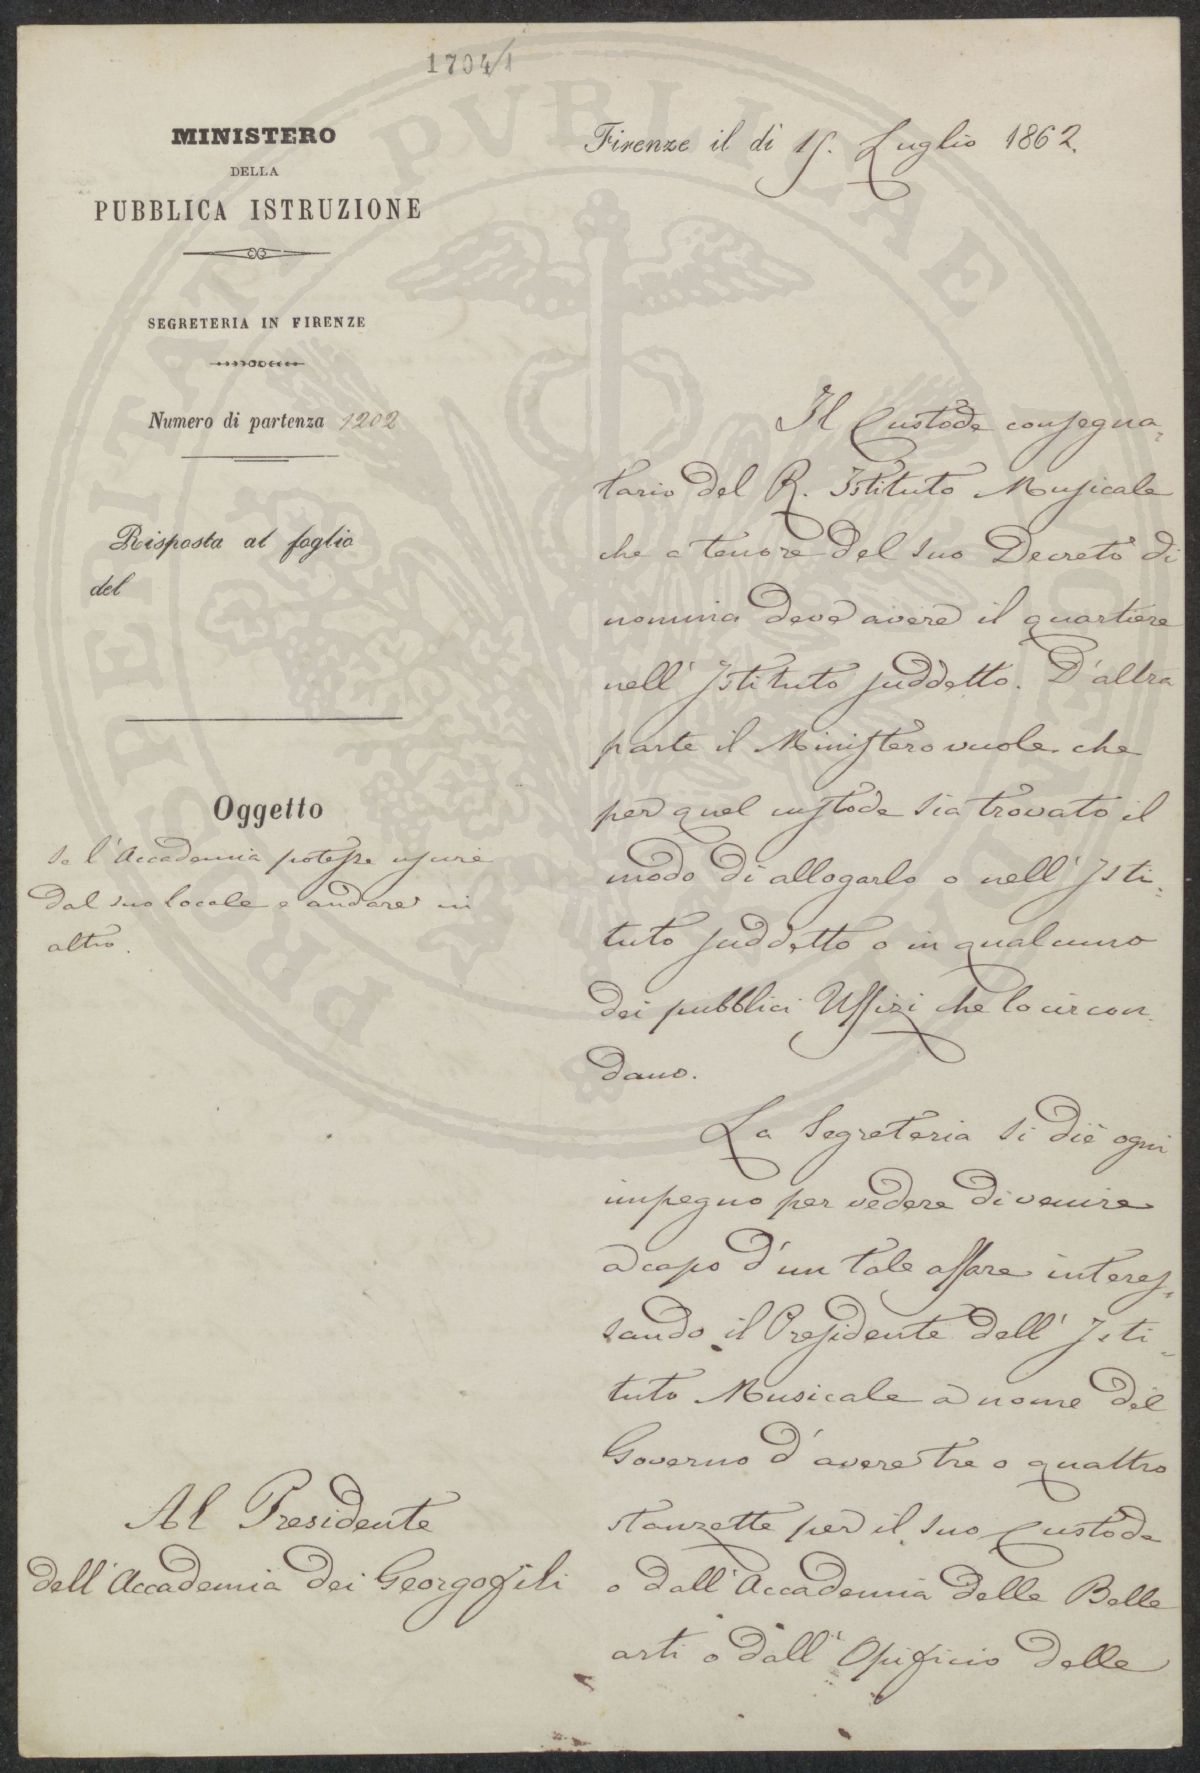 1704/1
MINISTERO
DELLA
PUBBLICA ISTRUZIONE
SEGRETERIA IN FIRENZE
Numero di partenza 1202
Risposta al foglio
del
Oggetto
Se l'Accademia potesse uscire
dal suo locale e andare in
altro.
Al Presidente
dell'Accademia dei Georgofili
Firenze il dì 15. Luglio 1862.
Il Custode consegna-
tario del R. Istituto Musicale
che a tenore del suo Decreto di
nomina deve avere il quartiere
nell'Istituto suddetto. D'altra
parte il Ministero vuole che
per quel custode sia trovato il
modo di allogarlo o nell'Isti-
tuto suddetto o in qualcuno
dei pubblici Uffizi che lo circon-
dano.
La Segreteria si diè ogni
impegno per vedere di venire
a capo d'un tale affare interes-
sando il Presidente dell'Isti-
tuto Musicale a nome del
Governo d'avere tre o quattro
stanzette per il suo Custode
o dall'Accademia delle Belle
arti o dall'Opificio delle
PROSPERITATI PUBLICAE AUGENDAE